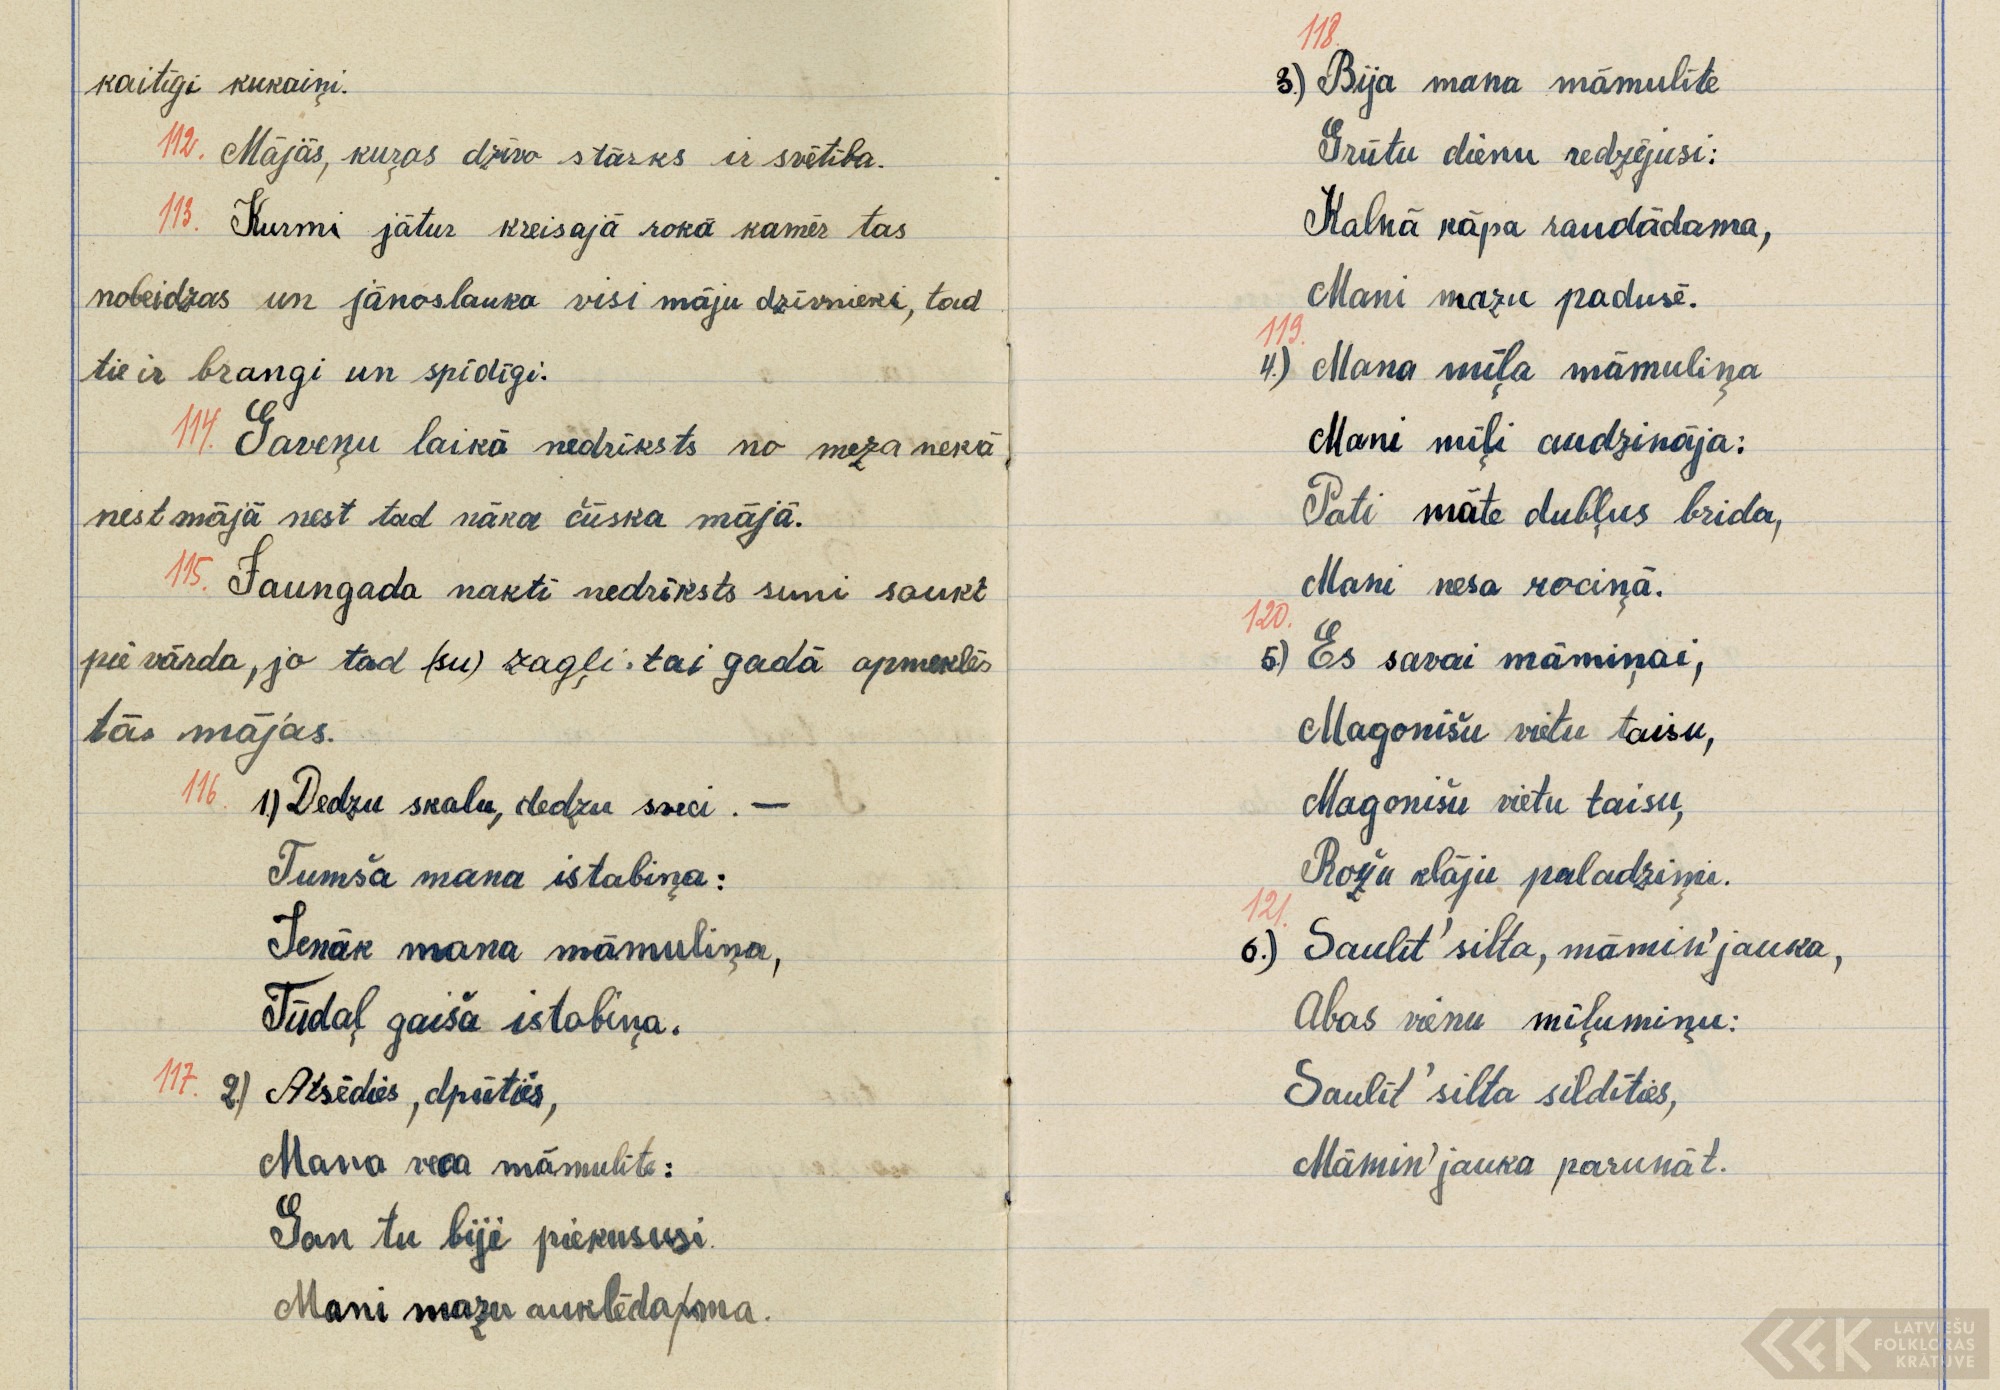 kaitīgi kukaiņi.
112. Mājās, kuŗas dzīvo stārks ir svētība.
113. Kurmi jātur kreisajā rokā kamēr tas
nobeidzas un jānoslauka visi māju dzīvnieki, tad
tie ir brangi un spīdīgi.
114. Gaveņu laikā nedrīksts no meža nekā
nest mājā nest tad nāka čūska mājā.
115. Jaungada naktī nedrīksts suni saukt
pie vārda, jo tad (su) zagļi tai gadā apmeklēs
tās mājas.
116. 1.) Dedzu skalu, dedzu sveci. —
Tumša mana istabiņa:
Ienāk mana māmuliņa,
Tūdaļ gaiša istabiņa.
117. 2.) Atsēdies, dpūties,
Mana veca māmulīte:
Gan tu biji piekususi
Mani mazu auklēdama.
118.
3.) Bija mana māmulīte
Grūtu dienu redzējusi:
Kalnā kāpa raudādama,
Mani mazu padusē.
119.
4.) Mana mīļa māmuliņa
Mani mīļi audzināja:
Pati māte dubļus brida,
Mani nesa rociņā.
120.
5.) Es savai māmiņai,
Magonīšu vietu taisu,
Magonīšu vietu taisu,
Rožu klāju paladziņu.
121.
6.) Saulīt' silta, māmiņ' jauka,
Abas vienu mīļumiņu:
Saulīt' silta sildīties,
Māmiņ' jauka parunāt.
LATVIEŠU
FOLKLORAS
KRĀTUVE